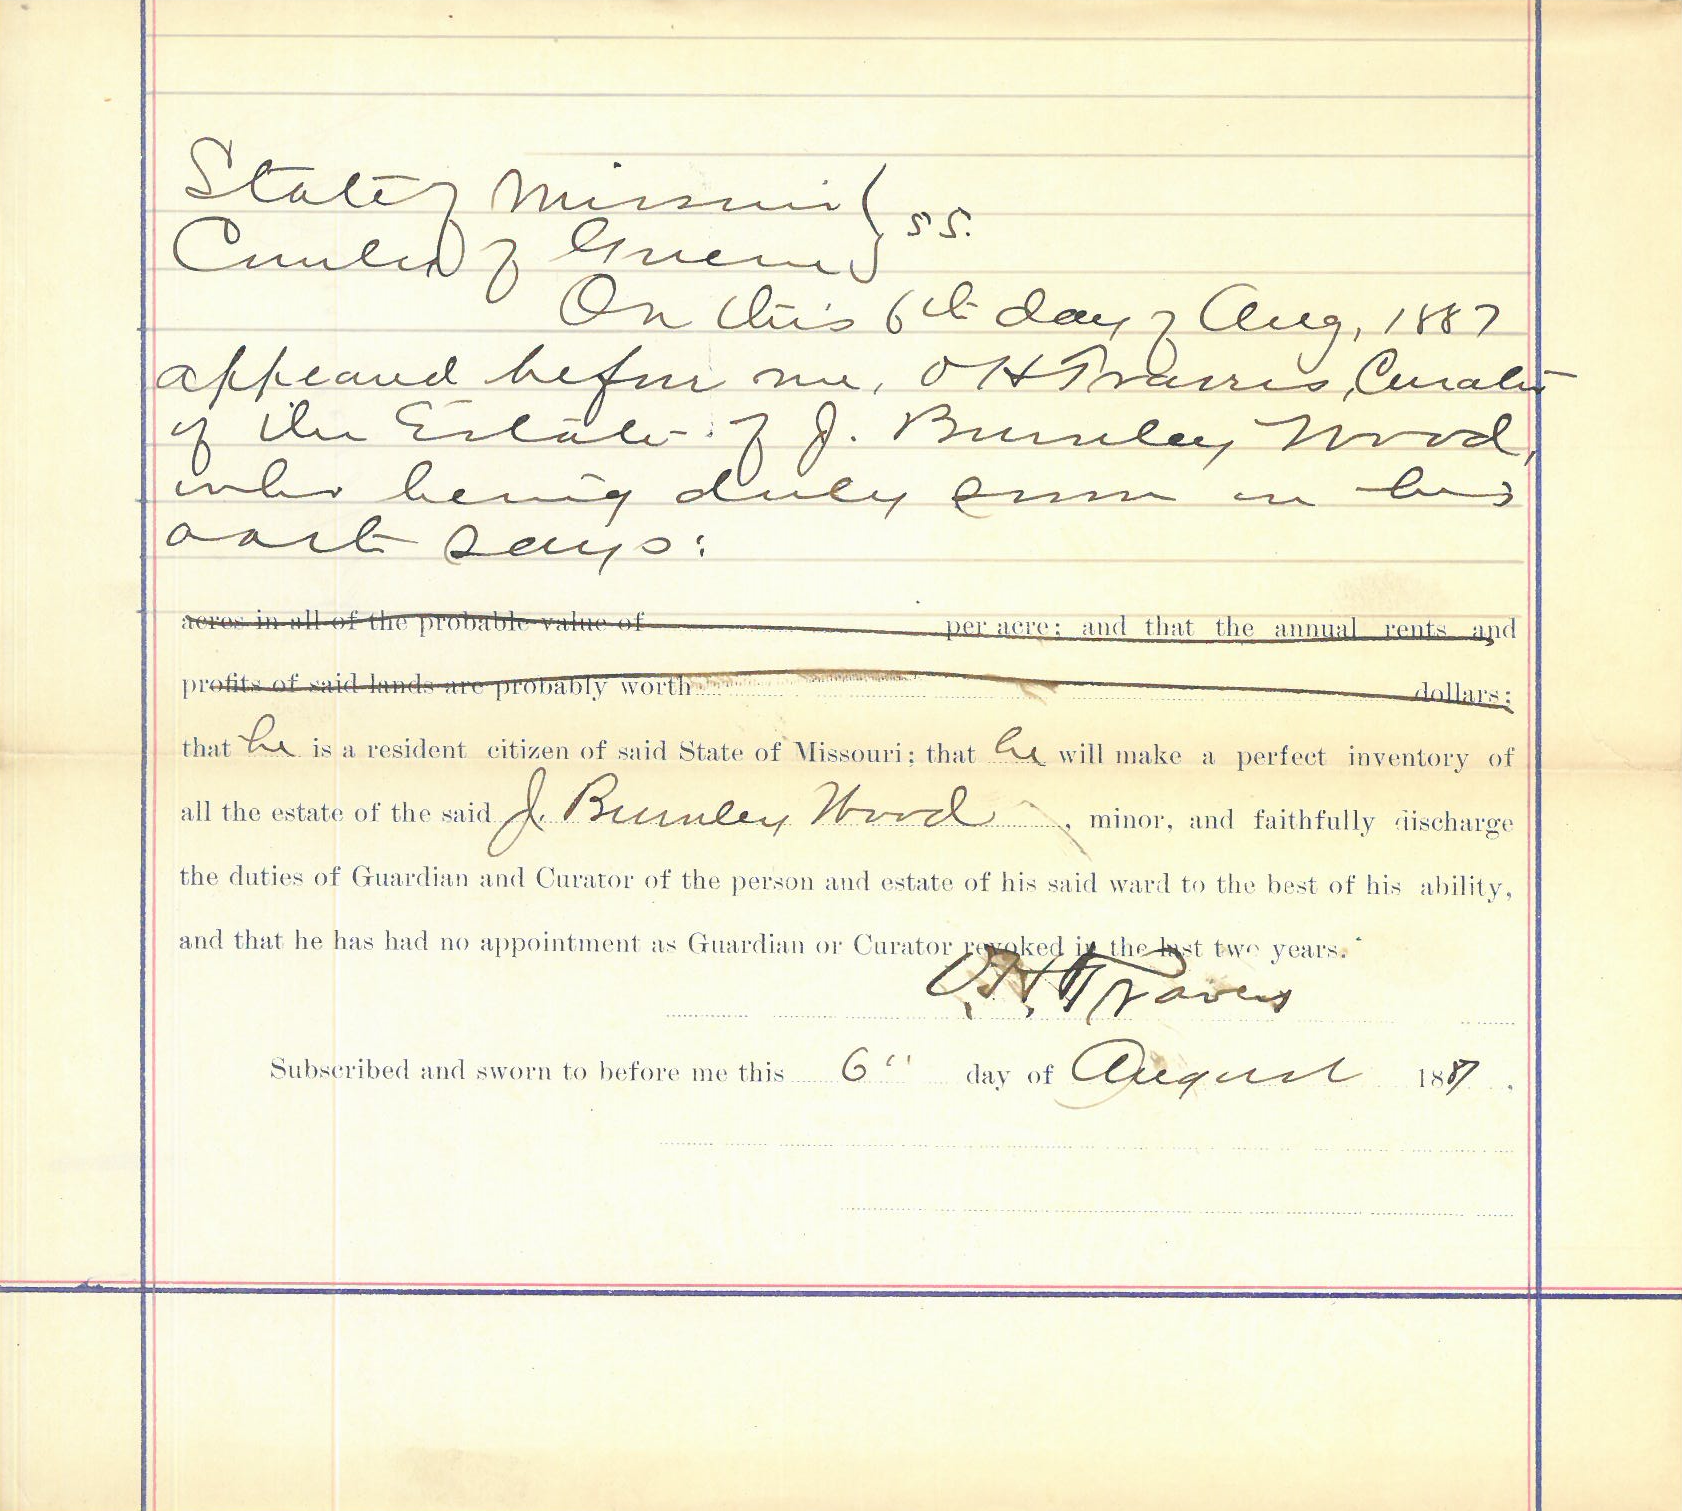 State of Missouri } ss.
County of Greene
On this 6th day of Aug, 1887
appeared before me, O H Travers, Curator
of the Estate of J. Burnley Wood,
who being duly sworn on his
oath says:
acres in all of the probable value of per acre; and that the annual rents and
profits of said lands are probably worth dollars;
that he is a resident citizen of said State of Missouri; that he will make a perfect inventory of
all the estate of the said J. Burnley Wood, minor, and faithfully discharge
the duties of Guardian and Curator of the person and estate of his said ward to the best of his ability,
and that he has had no appointment as Guardian or Curator revoked in the last two years.
O. H. Travers
Subscribed and sworn to before me this 6" day of August 1887.